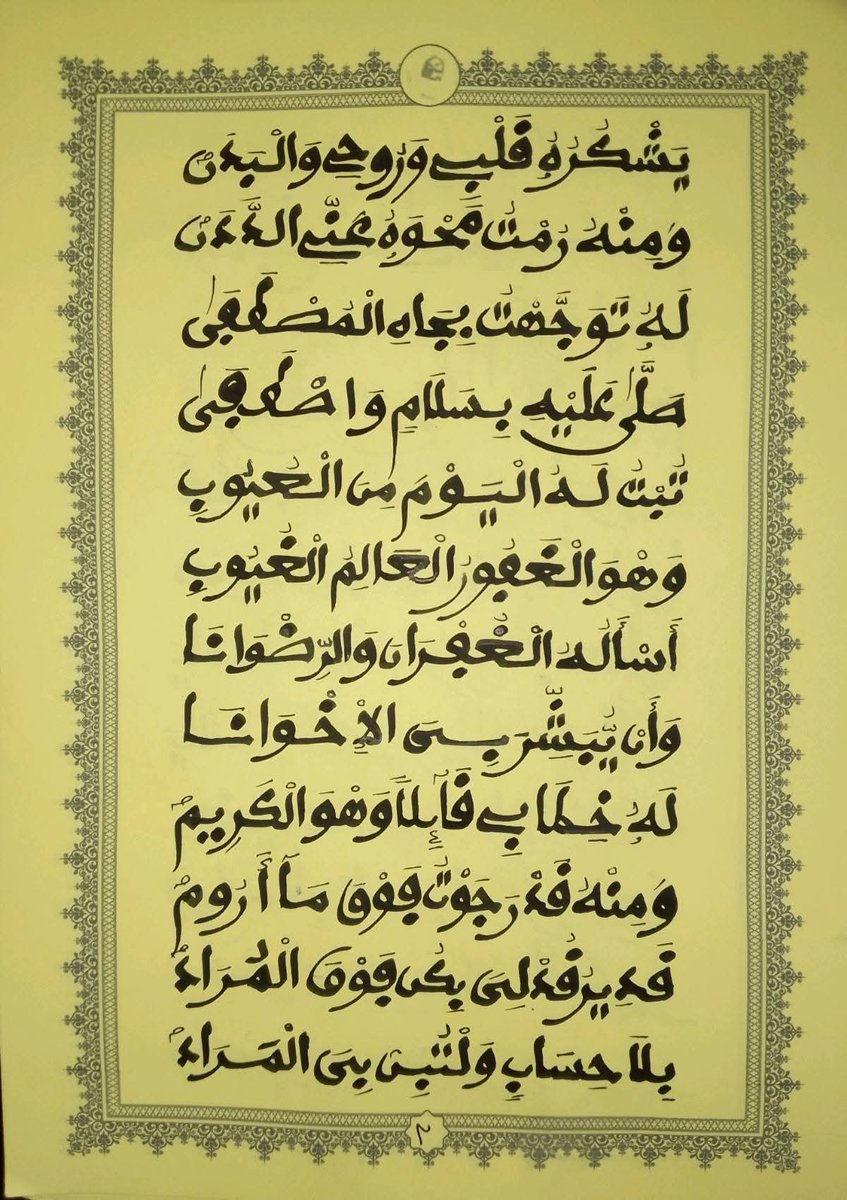 يَشْكُرُهُ قَلْبِي وَرُوحِي وَالْبَدَنْ
وَمِنْهُ رُمْتُ مَحْوَهُ عَنِّي الدَّرَنْ
لَهُ تَوَجَّهْتُ بِجَاهِ الْمُصْطَفَى
صَلَّى عَلَيْهِ بِسَلَامٍ وَاصْطَفَى
تُبْتُ لَهُ الْيَوْمَ مِنَ الْعُيُوبِ
وَهْوَ الْغَفُورُ الْعَالِمُ الْغُيُوبِ
أَسْأَلُهُ الْغُفْرَانَ وَالرِّضْوَانَا
وَأَنْ يُّبَشِّرَ بِيَ الْإِخْوَانَا
لَهُ خِطَابِي قَآئِلاً وَهْوَ الْكَرِيمْ
وَمِنْهُ قَدْ رَجَوْتُ فَوْقَ مَآ أَرُومْ
قَدِيرُ قُدْ لِيَ بِكُن فَوْقَ الْمُرَادْ
بِلَا حِسَابٍ وَلْتُبِنْ بِيَ الْمَرَادْ
٢